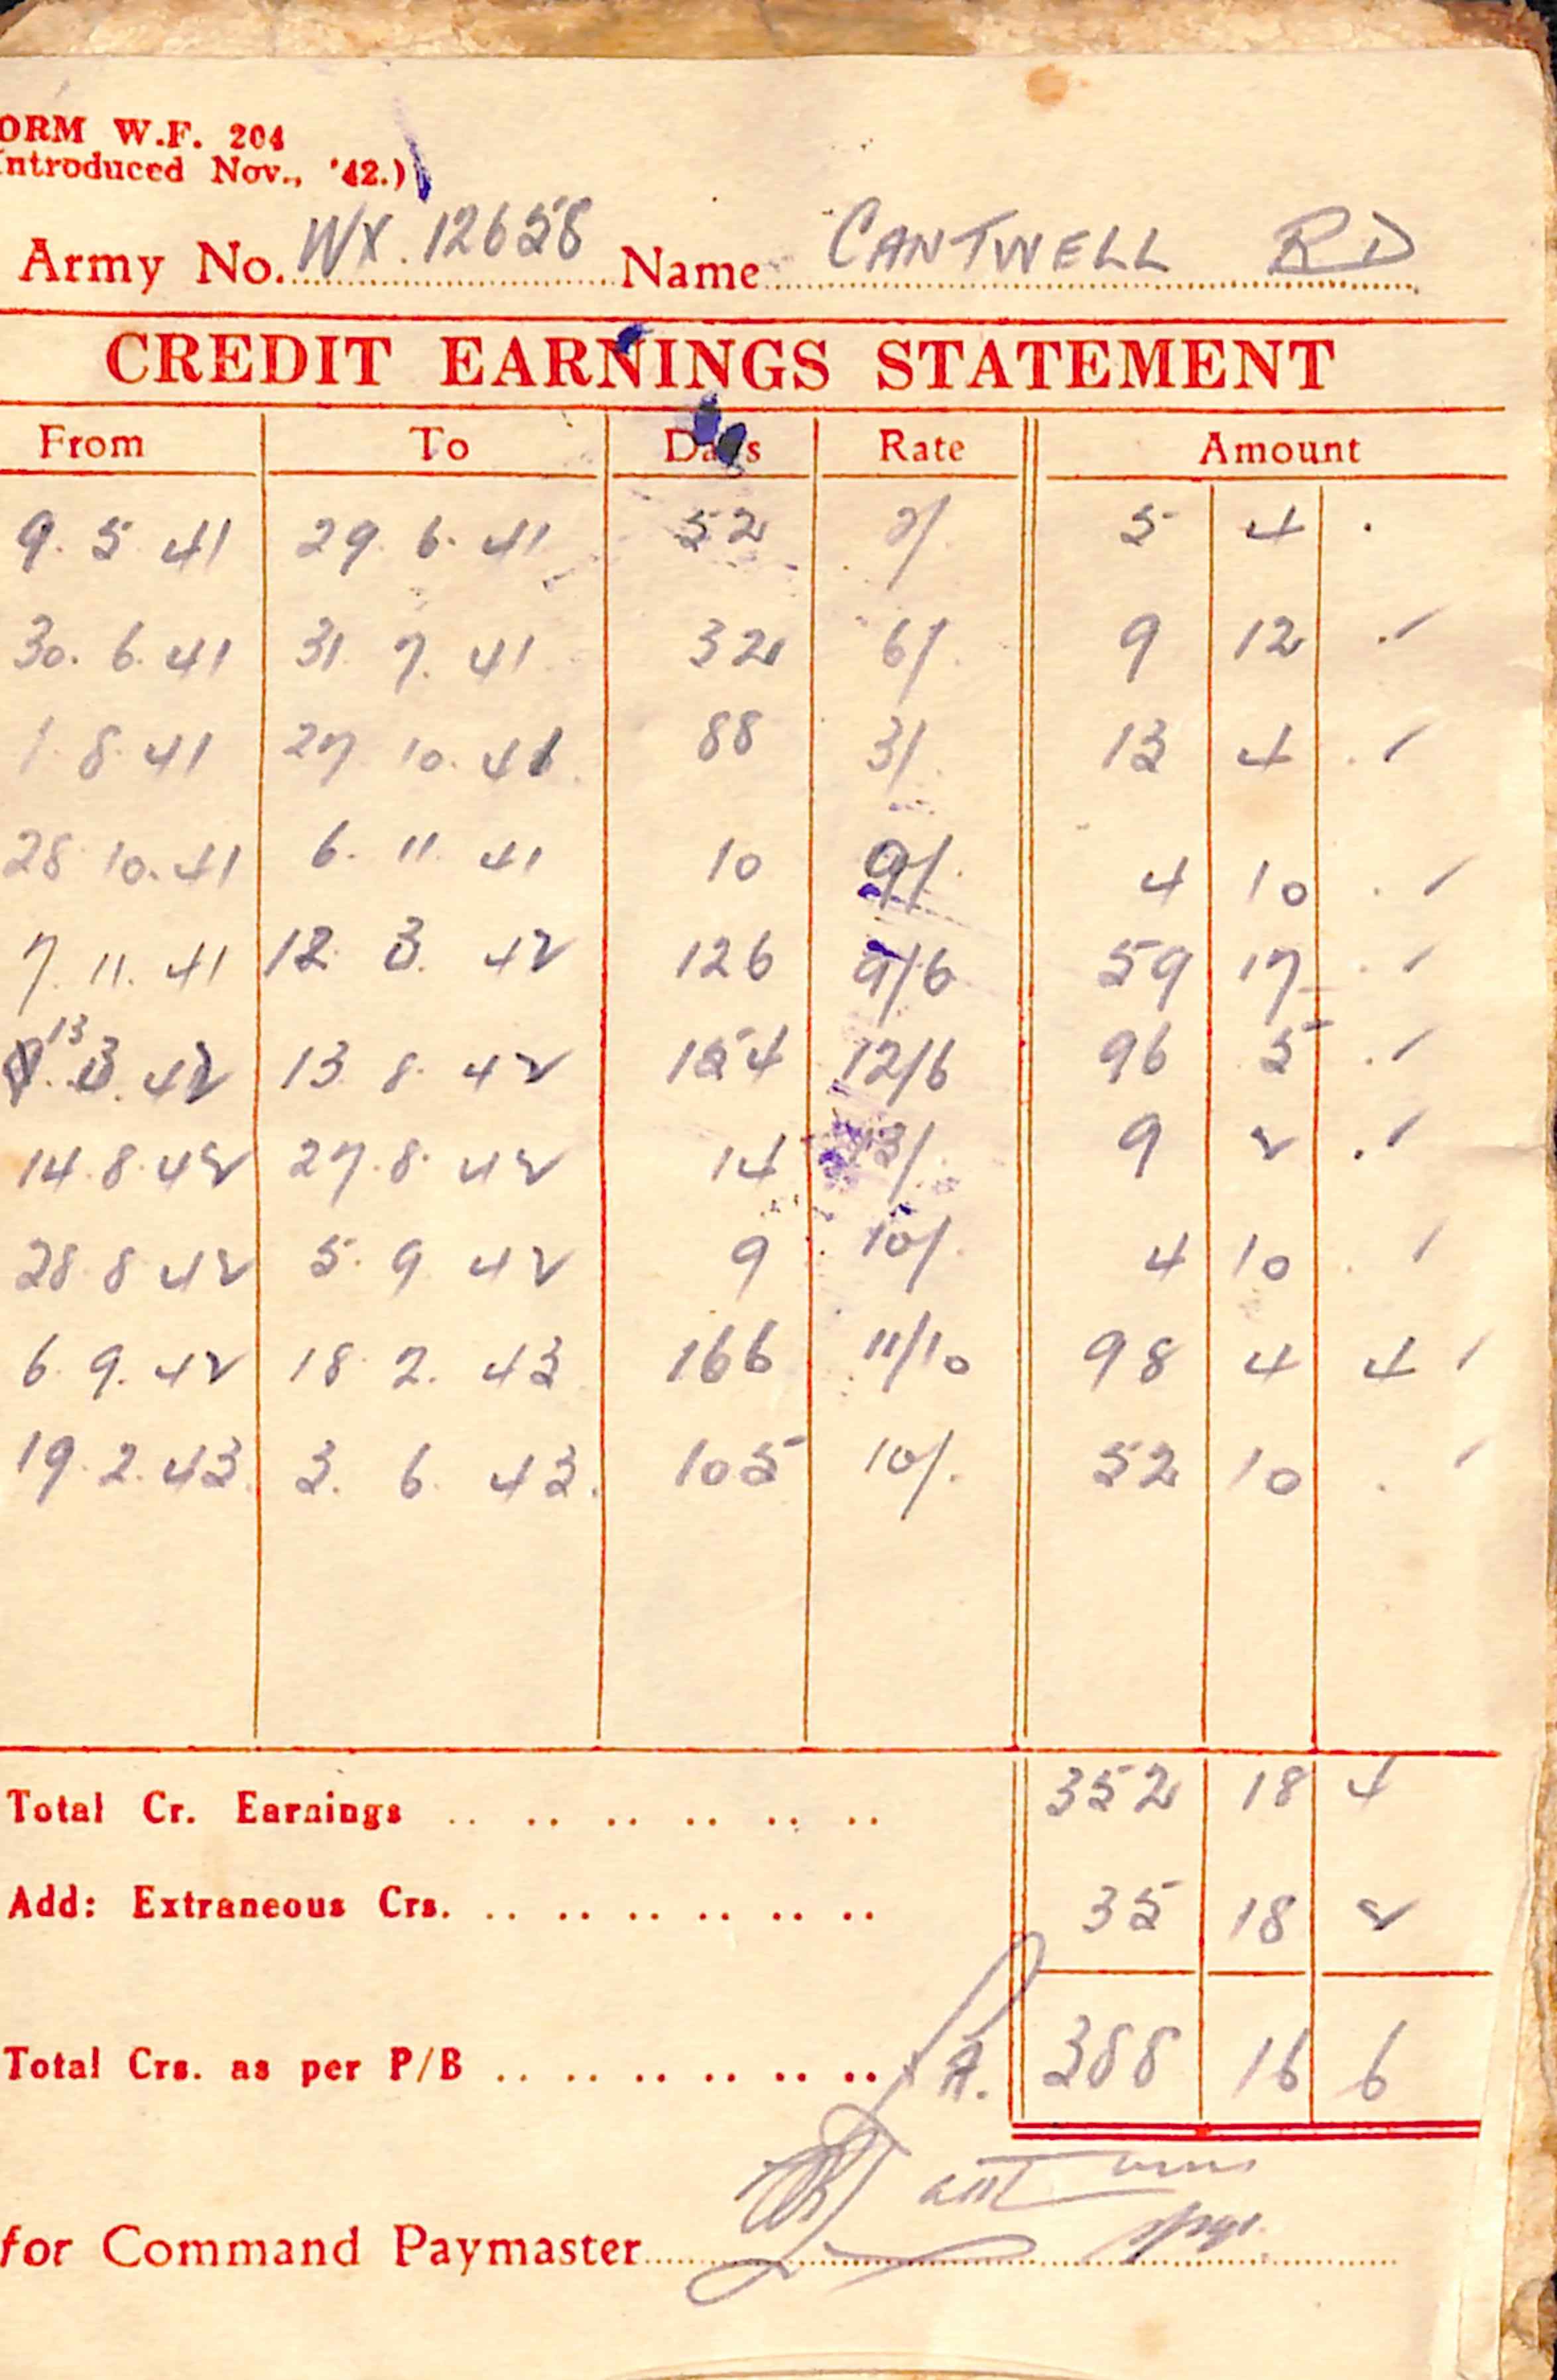 ORM W.F. 204
ntroduced Nov., '42.)
Army No. WX. 12658 Name CANTWELL RD
CREDIT EARNINGS STATEMENT
From To Days Rate Amount
9. 5 41 29. 6. 41 52 2/. 5 4 .
30. 6. 41 31 7. 41 32 6/. 9 12 .
1. 8. 41 27 10. 41 88 3/. 13 4 .
28 10. 41 6. 11. 41 10 9/. 4 10 .
7. 11. 41 12. 3. 42 126 9/6 59 17 .
13 3. 42 13. 8. 42 154 12/6 96 5 .
14. 8. 42 27. 8. 42 14 13/. 9 2 .
28 8 42 5. 9 42 9 10/. 4 10 .
6. 9. 42 18. 2. 43 166 11/10 98 4 4
19. 2. 43. 3. 6. 43. 105 10/. 52 10 .
Total Cr. Earnings .. .. .. .. .. .. 352 18 4
Add: Extraneous Crs. .. .. .. .. .. .. 35 18 2
Total Crs. as per P/B .. .. .. .. .. .. A. 388 16 6
for Command Paymaster